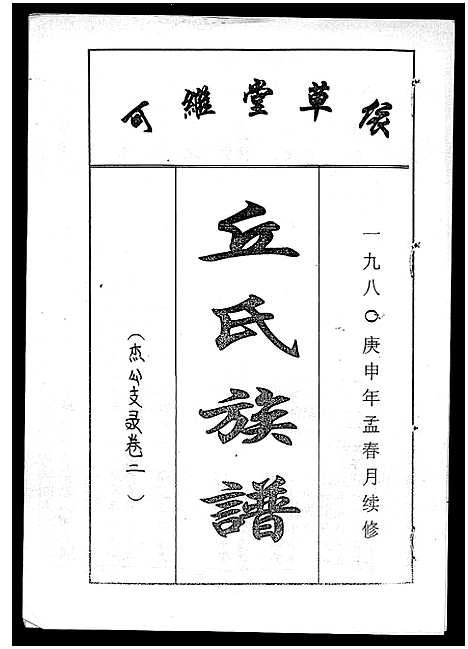 草堂維
一九八〇庚申年孟春月续修
丘氏族譜
（杰公支录卷二）